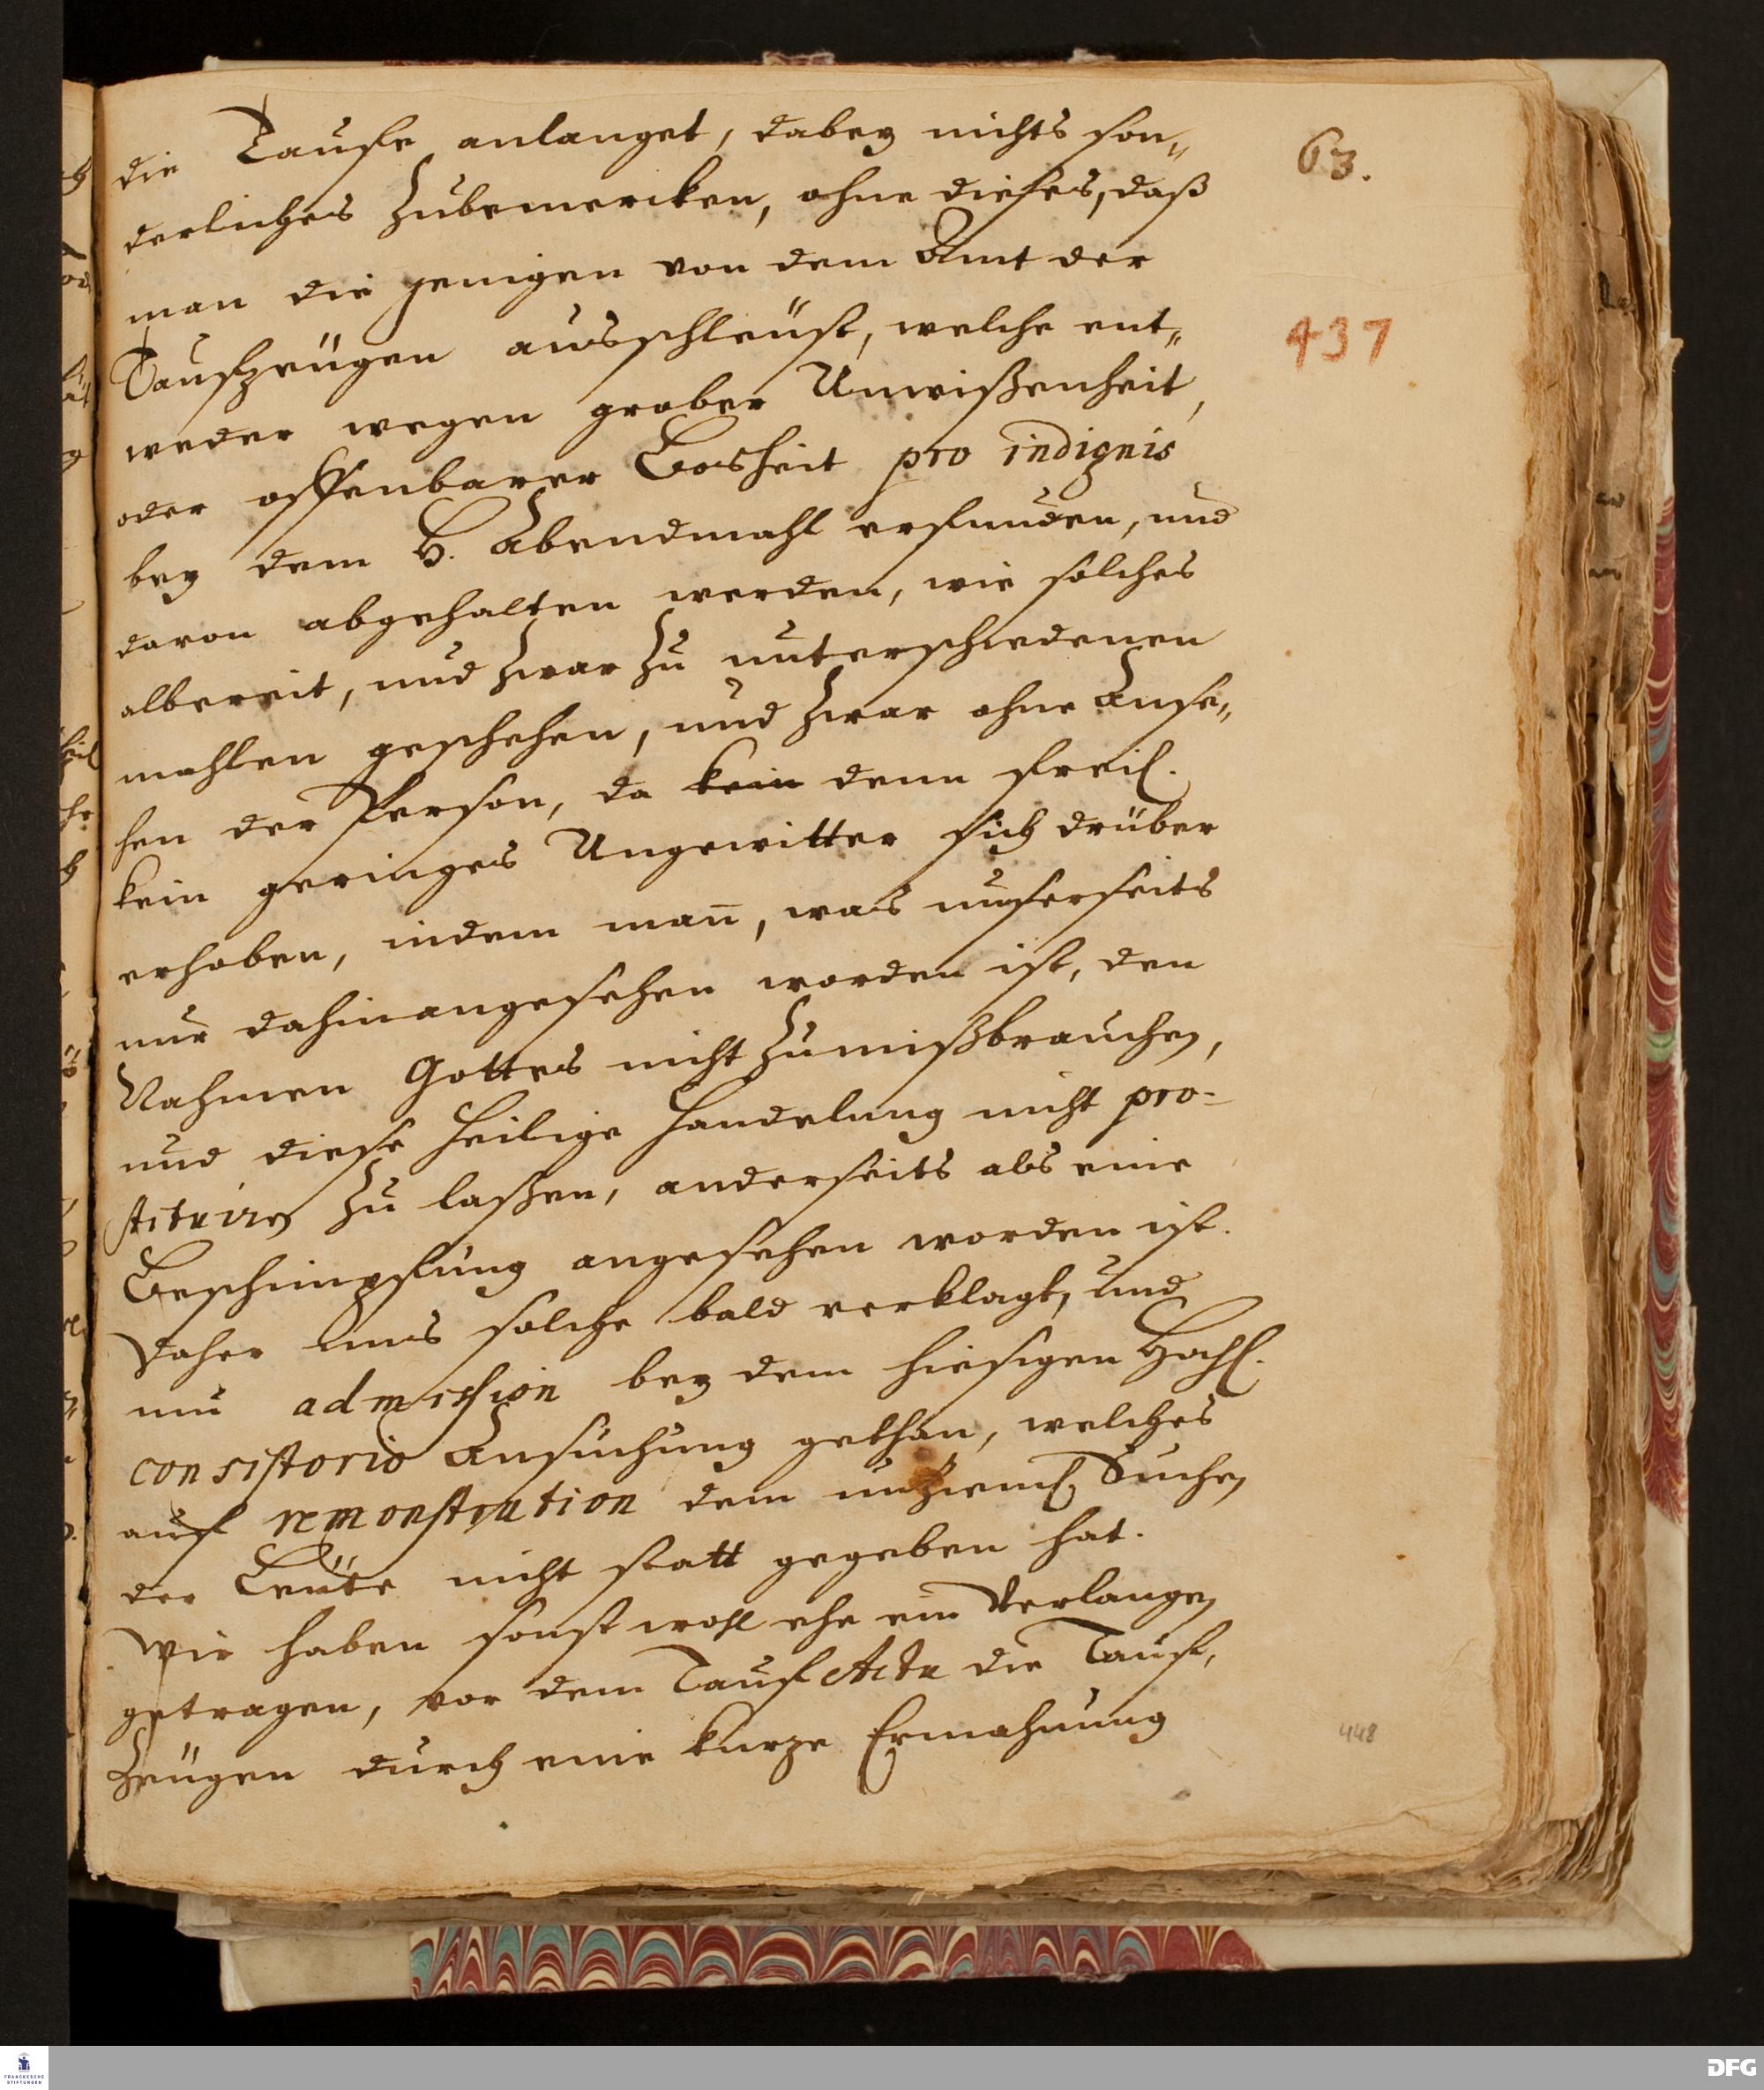 die Taufe anlanget, dabey nichts son„
63.
derliches zubemercken, ohne dieses, daß
man die jenigen von dem Amt der
Taufzeügen ausschleüst, welche ent„
437
weder wegen grober Unwißenheit,
oder offenbarer Bosheit pro indignis
bey dem H. Abendmahl erfunden, und
davon abgehalten werden, wie solches
albereit, und zwar zu unterschiedenen
mahlen geschehen, und zwar ohne Anse„
hen der Person, da kein denn freil.
kein geringes Ungewitter sich drüber
erhoben, indem man̄, was unserseits
nur dahinangesehen worden ist, den
Nahmen Gottes nicht zumißbrauchen,
und diese heilige Handelung nicht pro-
stituiren zu laßen, anderseits als eine
Beschimpfung angesehen worden ist.
Daher uns solche bald verklagt, und
um admission bey dem hiesigen Hochl.
consistorio Ansuchung gethan, welches
auf remonstration dem unzieml. Suchen
der Leüte nicht statt gegeben hat.
Wir haben sonst wohl ehe ein Verlangen
getragen, vor dem Tauf Actu die Tauf,
Zeügen durch eine kurze Ermahnung
448
FRANCKESCHE
STIFTUNGEN
DFG